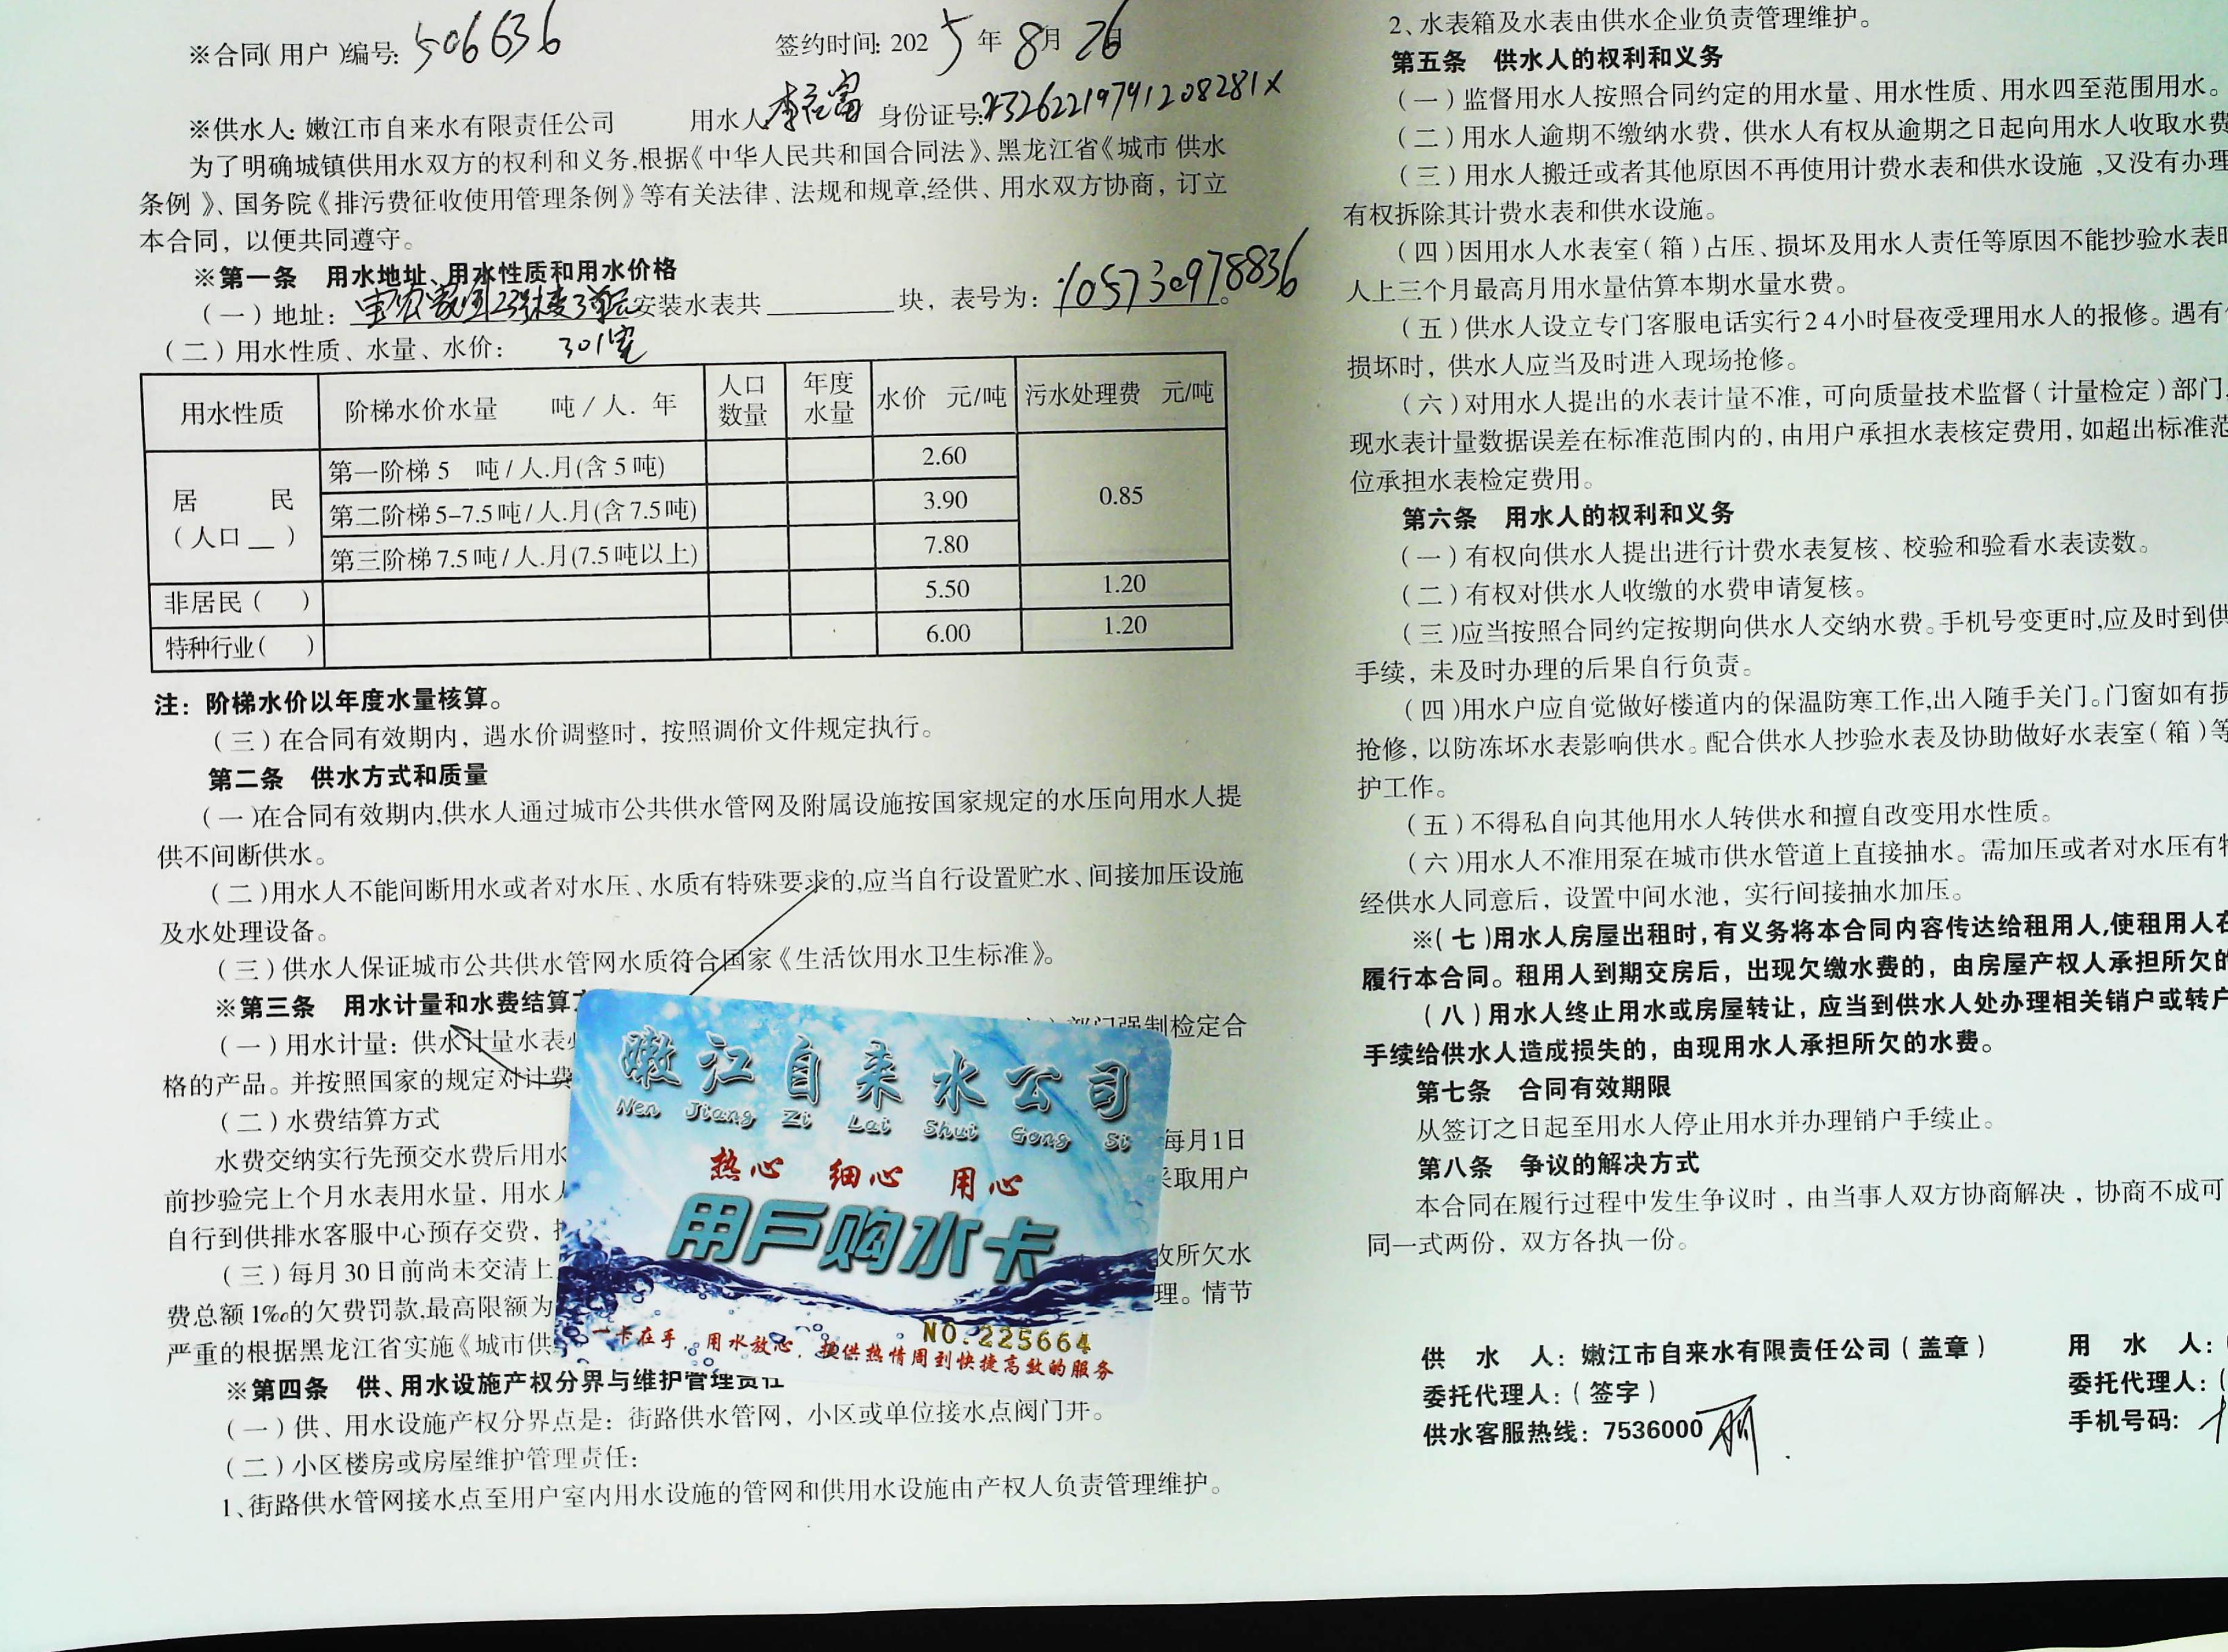 ※合同(用户)编号: 506636 签约时间: 2025年8月26日
※供水人: 嫩江市自来水有限责任公司 用水人 身份证号:
为了明确城镇供用水双方的权利和义务,根据《中华人民共和国合同法》、黑龙江省《城市供水
条例》、国务院《排污费征收使用管理条例》等有关法律、法规和规章,经供、用水双方协商，订立
本合同，以便共同遵守。
※第一条 用水地址、用水性质和用水价格
(一)地址: 23栋楼3单元 安装水表共 块，表号为: 
301室
(二)用水性质、水量、水价:
用水性质 阶梯水价水量 吨/人. 年 人口数量 年度水量 水价 元/吨 污水处理费 元/吨
居 民 (人口 __ )
第一阶梯 5 吨/人.月(含5吨) 2.60 0.85
第二阶梯 5-7.5吨/人.月(含7.5吨) 3.90
第三阶梯 7.5吨/人.月(7.5吨以上) 7.80
非居民( ) 5.50 1.20
特种行业( ) 6.00 1.20
注: 阶梯水价以年度水量核算。
(三)在合同有效期内，遇水价调整时，按照调价文件规定执行。
第二条 供水方式和质量
(一)在合同有效期内,供水人通过城市公共供水管网及附属设施按国家规定的水压向用水人提
供不间断供水。
(二)用水人不能间断用水或者对水压、水质有特殊要求的,应当自行设置贮水、间接加压设施
及水处理设备。
(三)供水人保证城市公共供水管网水质符合国家《生活饮用水卫生标准》。
※第三条 用水计量和水费结算
(一)用水计量: 供水计量水表 部门强制检定合
格的产品。并按照国家的规定对计费
(二)水费结算方式
水费交纳实行先预交水费后用水 每月1日
前抄验完上个月水表用水量，用水 采取用户
自行到供排水客服中心预存交费，
(三)每月30日前尚未交清上 收所欠水
费总额1‰的欠费罚款,最高限额为 理。情节
严重的根据黑龙江省实施《城市供
嫩江自来水公司
Nen Jiang Zi Lai Shui Gong Si
热心 细心 用心
用户购水卡
NO.225664
一卡在手，用水放心，提供热情周到快捷高效的服务
※第四条 供、用水设施产权分界与维护管理责任
(一)供、用水设施产权分界点是: 街路供水管网，小区或单位接水点阀门井。
(二)小区楼房或房屋维护管理责任:
1、街路供水管网接水点至用户室内用水设施的管网和供用水设施由产权人负责管理维护。
2、水表箱及水表由供水企业负责管理维护。
第五条 供水人的权利和义务
(一)监督用水人按照合同约定的用水量、用水性质、用水四至范围用水。
(二)用水人逾期不缴纳水费，供水人有权从逾期之日起向用水人收取水费
(三)用水人搬迁或者其他原因不再使用计费水表和供水设施,又没有办理
有权拆除其计费水表和供水设施。
(四)因用水人水表室(箱)占压、损坏及用水人责任等原因不能抄验水表时
人上三个月最高月用水量估算本期水量水费。
(五)供水人设立专门客服电话实行24小时昼夜受理用水人的报修。遇有
损坏时，供水人应当及时进入现场抢修。
(六)对用水人提出的水表计量不准，可向质量技术监督(计量检定)部门
现水表计量数据误差在标准范围内的,由用户承担水表核定费用,如超出标准范
位承担水表检定费用。
第六条 用水人的权利和义务
(一)有权向供水人提出进行计费水表复核、校验和验看水表读数。
(二)有权对供水人收缴的水费申请复核。
(三)应当按照合同约定按期向供水人交纳水费。手机号变更时,应及时到供
手续，未及时办理的后果自行负责。
(四)用水户应自觉做好楼道内的保温防寒工作,出入随手关门。门窗如有损
抢修,以防冻坏水表影响供水。配合供水人抄验水表及协助做好水表室(箱)等
护工作。
(五)不得私自向其他用水人转供水和擅自改变用水性质。
(六)用水人不准用泵在城市供水管道上直接抽水。需加压或者对水压有特
经供水人同意后，设置中间水池，实行间接抽水加压。
※(七)用水人房屋出租时,有义务将本合同内容传达给租用人,使租用人在
履行本合同。租用人到期交房后，出现欠缴水费的，由房屋产权人承担所欠的
(八)用水人终止用水或房屋转让，应当到供水人处办理相关销户或转户
手续给供水人造成损失的，由现用水人承担所欠的水费。
第七条 合同有效期限
从签订之日起至用水人停止用水并办理销户手续止。
第八条 争议的解决方式
本合同在履行过程中发生争议时，由当事人双方协商解决，协商不成可
同一式两份，双方各执一份。
供 水 人: 嫩江市自来水有限责任公司(盖章) 用 水 人:
委托代理人:(签字) 委托代理人:(
供水客服热线: 7536000 手机号码: